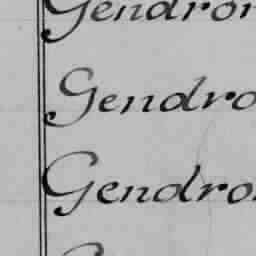 Gendron
Gendro
Gendron